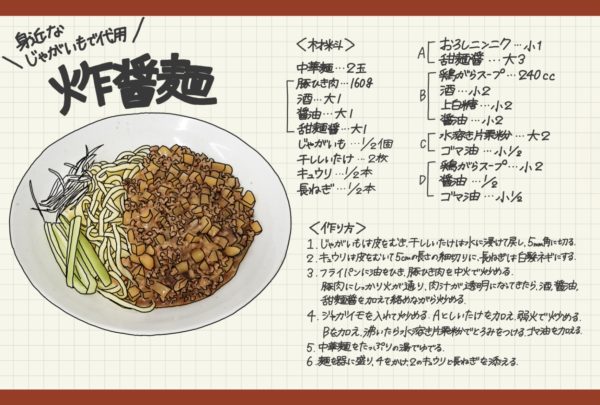 身近な
じゃがいもで代用
炸醤麺
<材料>
中華麺…2玉
豚ひき肉…160g
酒…大1
醤油…大1
甜麺醤…大1
じゃがいも…1/2個
干ししいたけ…2枚
キュウリ…1/2本
長ねぎ…1/2本
A
おろしニンニク…小1
甜麺醤…大3
B
鶏がらスープ…240cc
酒…小2
上白糖…小2
醤油…小2
C
水溶き片栗粉…大2
ゴマ油…小1/2
D
鶏がらスープ…小2
醤油…1/2
ゴマ油…小1/2
<作り方>
1. じゃがいもは皮をむき、干ししいたけは水に浸けて戻し、5mm角に切る。
2. キュウリは皮をむいて5cmの長さの細切りに、長ねぎは白髪ネギにする。
3. フライパンに油をひき、豚ひき肉を中火で炒める。
豚肉にしっかり火が通り、肉汁が透明になってきたら、酒、醤油、
甜麺醤を加えて絡めながら炒める。
4. ジャガイモを入れて炒める。Aとしいたけを加え、弱火で炒める。
Bを加え、沸いたら水溶き片栗粉でとろみをつける。ゴマ油を加える。
5. 中華麺をたっぷりの湯でゆでる。
6. 麺を器に盛り、4をかけ、2のキュウリと長ねぎを添える。